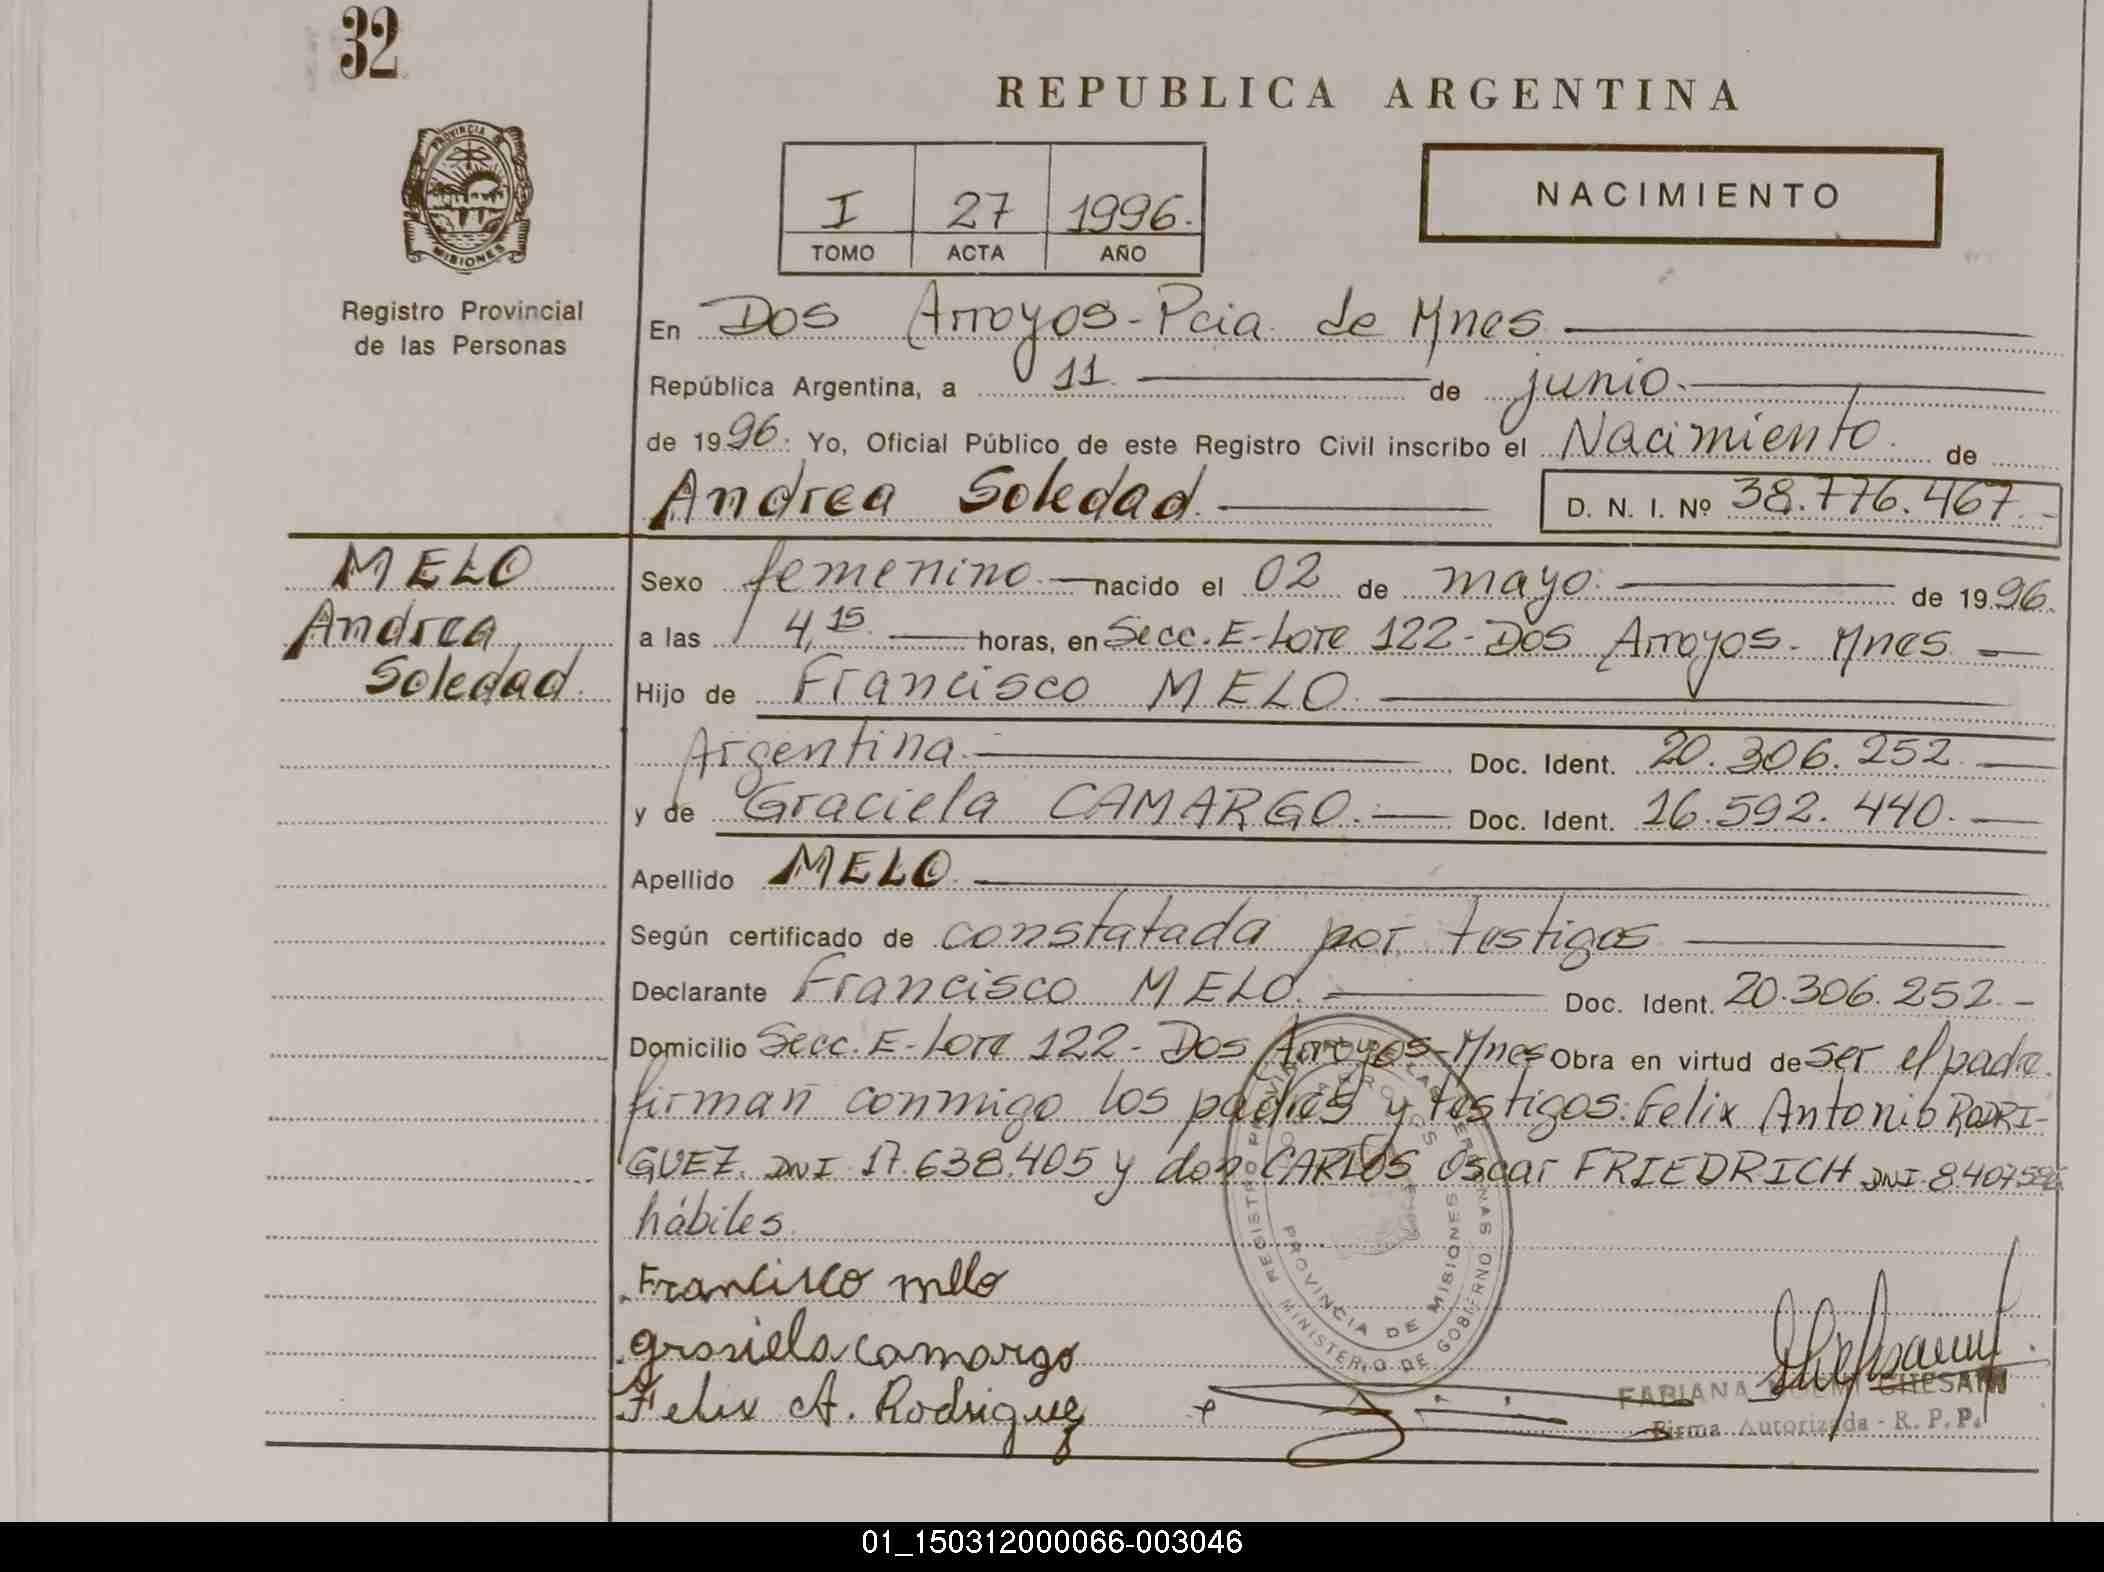 32
REPUBLICA ARGENTINA
PROVINCIA DE
MISIONES
Registro Provincial
de las Personas
I 27 1996.
TOMO ACTA AÑO
NACIMIENTO
En Dos Arroyos - Pcia. de Mnes
República Argentina, a 11. de junio.
de 1996. Yo, Oficial Público de este Registro Civil inscribo el Nacimiento. de
Andrea Soledad. D. N. I. Nº 38.776.467.-
MELO
Andrea
Soledad.
Sexo femenino. nacido el 02 de mayo. de 1996.
a las 4,15 horas, en Secc. E - Lote 122 - Dos Arroyos - Mnes
Hijo de Francisco MELO.
Argentina. Doc. Ident. 20.306.252.
y de Graciela CAMARGO. Doc. Ident. 16.592.440.
Apellido MELO
Según certificado de constatada por testigos
Declarante Francisco MELO. Doc. Ident. 20.306.252.-
Domicilio Secc. E - Lote 122 - Dos Arroyos - Mnes Obra en virtud de ser el padre.
firman conmigo los padres y testigos: Felix Antonio RODRI-
GUEZ. DNI 17.638.405 y don CARLOS Oscar FRIEDRICH DNI
hábiles
REGISTRO PROVINCIAL DE LAS PERSONAS
MINISTERIO DE GOBIERNO
DOS ARROYOS
PROVINCIA DE MISIONES
Francisco mello
grasiela camargo
Felix A. Rodriguez
FABIANA GHESAN
Firma Autorizada - R. P. P.
01_150312000066-003046